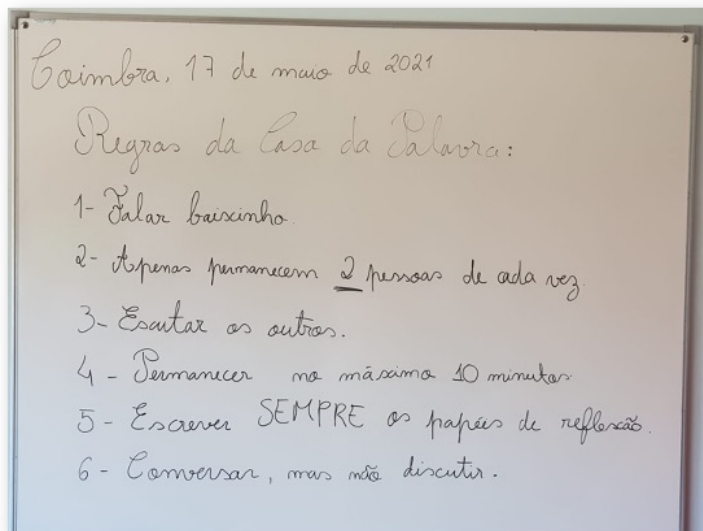 Coimbra, 17 de maio de 2021
Regras da Casa da Palavra:
1- Falar baixinho.
2- Apenas permanecem 2 pessoas de cada vez.
3- Escutar os outros.
4- Permanecer no máximo 10 minutos.
5- Escrever SEMPRE os papéis de reflexão.
6- Conversar, mas não discutir.